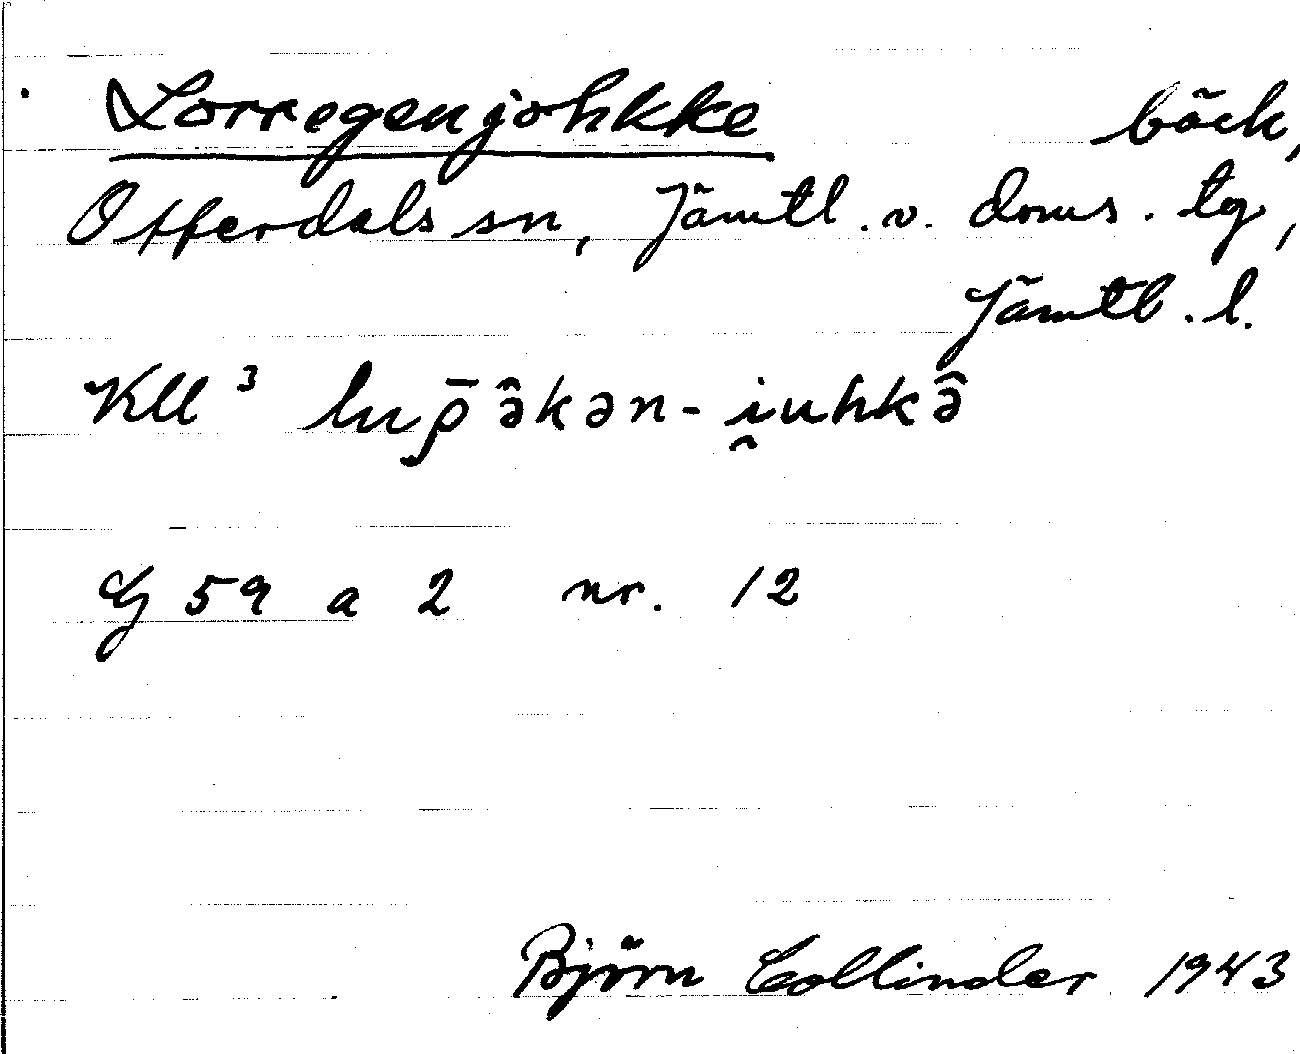 Lorregenjohkke bäck,
Offerdals sn, Jämtl. v. doms. tg,
Jämtl. l.
Kll³ luρ̄ə̂kən-i̯uhkə̂
G 59 a 2 nr. 12
Björn Collinder 1943